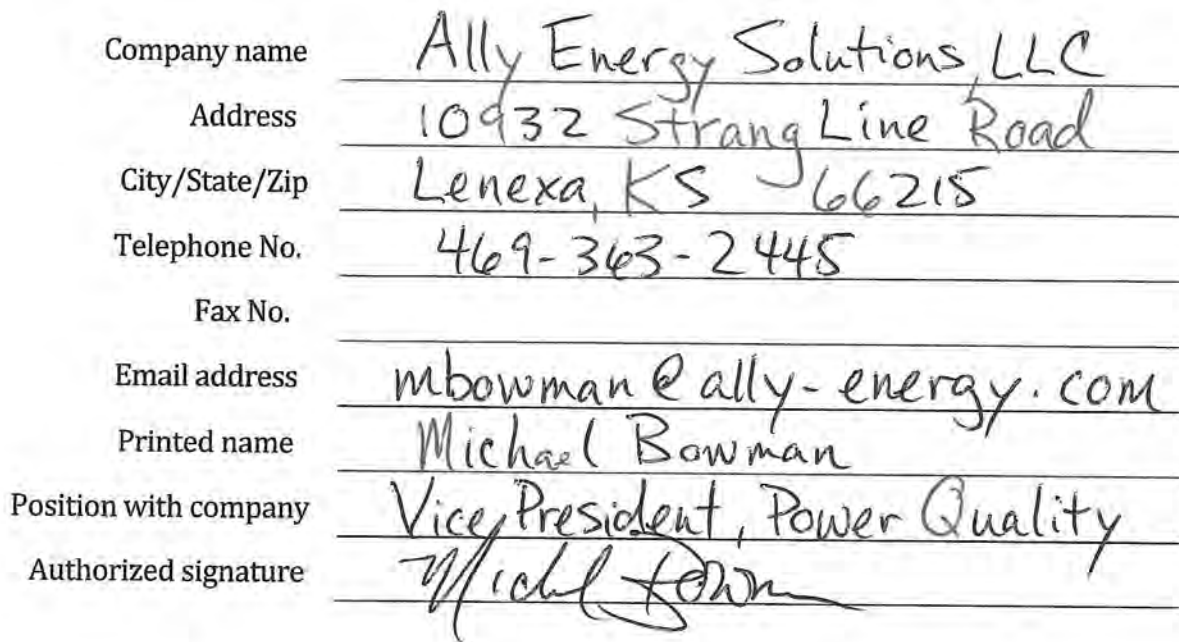 Company name Ally Energy Solutions, LLC
Address 10932 Strang Line Road
City/State/Zip Lenexa, KS 66215
Telephone No. 469-363-2445
Fax No.
Email address mbowman@ally-energy.com
Printed name Michael Bowman
Position with company Vice President, Power Quality
Authorized signature